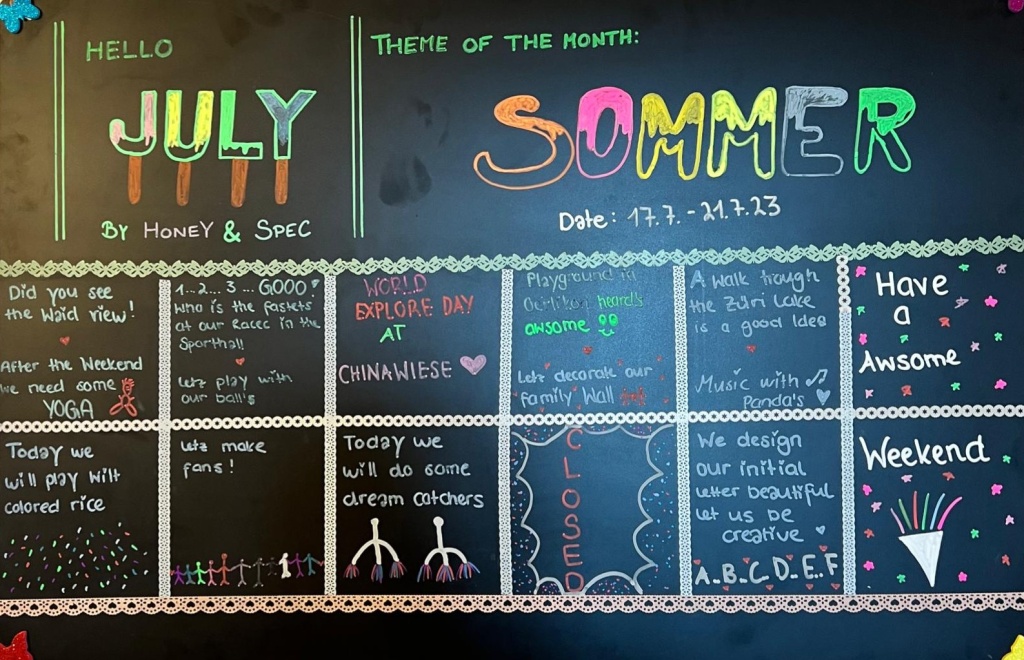 HELLO
JULY
BY HONEY & SPEC
THEME OF THE MONTH:
SOMMER
Date: 17.7. - 21.7.23
Did you see
the Waid view!
After the Weekend
we need some
YOGA
1...2... 3 ... GOOO
Who is the fastets
at our Races in the
Sporthall
Letz play with
our ball's
WORLD
EXPLORE DAY
AT
CHINAWIESE
Playground in
Oerlikon heard's
awsome
Letz decorate our
family Wall
A walk trough
the Züri Lake
is a good Idea
Music with
Panda's
Have
a
Awsome
Today we
will play witt
colored rice
Letz make
fans!
Today we
will do some
dream catchers
CLOSED
We design
our initial
letter beautiful
let us be
creative
A.B.C.D.E.F
Weekend